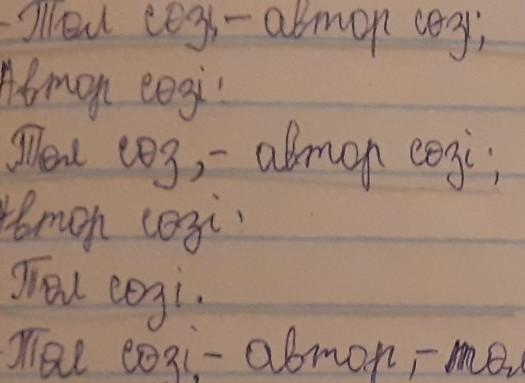 - Төл сөзі, - автор сөзі;
Автор сөзі:
Төл сөз, - автор сөзі;
Автор сөзі:
Төл сөзі.
Төл сөзі, - автор, - төл